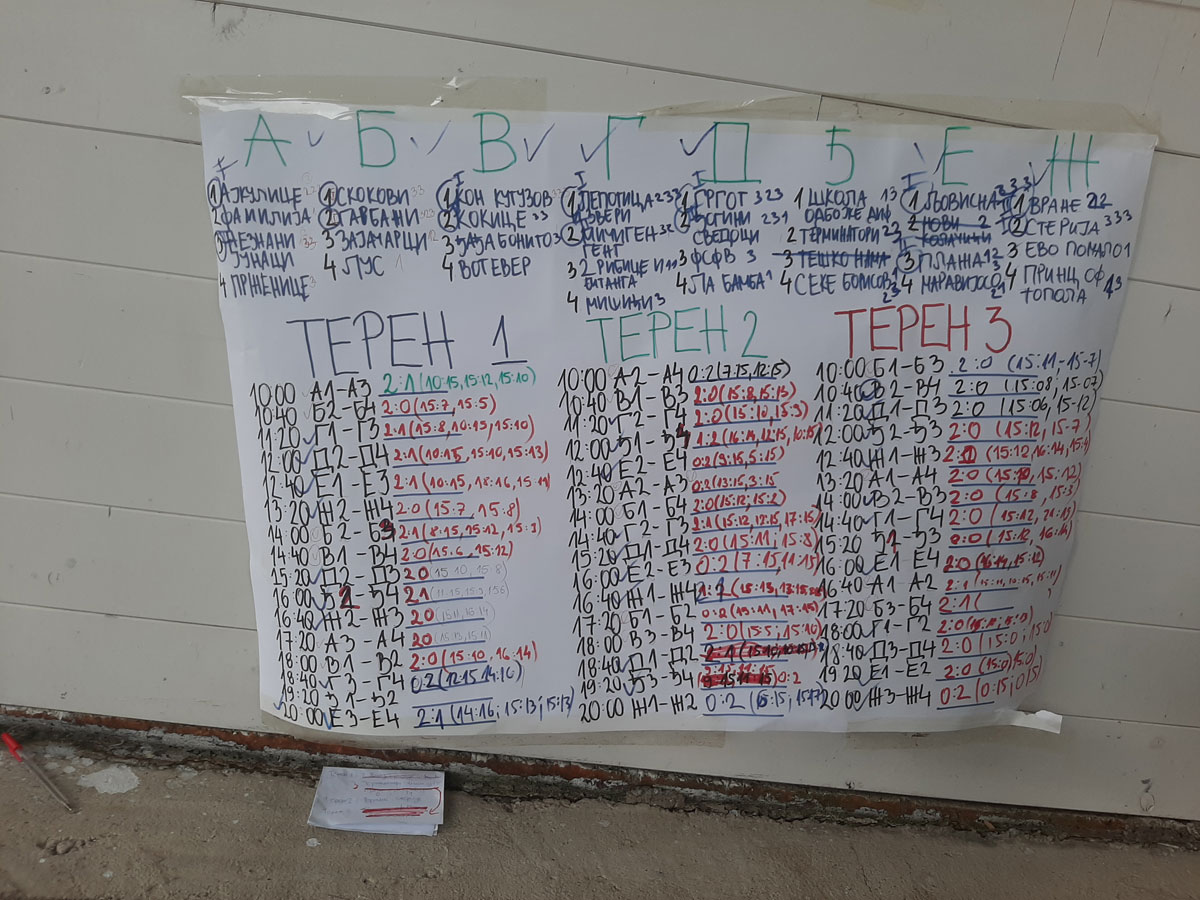 А Б В Г Д Ђ Е Ж
1 АЈКУЛИЦЕ
2 ФАМИЛИЈА
3 НЕЗНАНИ
ЈУНАЦИ
4 ПРЖЕНИЦЕ
1 СКОКОВИ
2 ГАРБАЊИ
3 ЗАЈАЧАРЦИ
4 ЛУС
1 КОН КУГУЗОВ
2 КОКИЦЕ
3 ЂАЂА БОНИТО
4 ВОТЕВЕР
1 ЛЕПОТИЦА
ЗВЕРИ
2 МИЧИГЕН
ТЕНТ
3 2 РИБИЦЕ И
БИТАНГА
4 МИШИЦИ
1 ГРГОТ 323
2 БОГИНИ 231
СВЕДОЦИ
3 ФСФВ 3
4 ЛА БАМБА
1 ШКОЛА 13
ОДБОЈКЕ ДИФ
2 ТЕРМИНАТОРИ
3 ТЕШКО НАМА
4 СЕКЕ БОРИСОВ
1 ЉОВИСНА
2 НОВИ
КОЗАЧИЦИ
3 ПЛАЖА 12
4 МАРАВИЈОСО
1 ВРАНЕ 22
2 СТЕРИЈА 333
3 ЕВО ПОМАЛО 1
4 ПРИНЦ ОФ
ТОПОЛА
ТЕРЕН 1
10:00 А1-А3 2:1 (10:15, 15:12, 15:10)
10:40 Б2-Б4 2:0 (15:7, 15:5)
11:20 Г1-Г3 2:1 (15:8, 10:15, 15:10)
12:00 Д2-Д4 2:1 (10:15, 15:10, 15:13)
12:40 Е1-Е3 2:1 (10:15, 18:16, 15:11)
13:20 Ж2-Ж4 2:0 (15:7, 15:8)
14:00 Б2-Б3 2:1 (8:15, 15:12,
14:40 В1-В4 2:0 (15:6, 15:12)
15:20 Д2-Д3 2:0 (15:10, 15:8)
16:00 Ђ2-Ђ4 2:1
16:40 Ж2-Ж3 2:0 (15:11, 16:14)
17:20 А3-А4 2:0 (15:13, 15:11)
18:00 В1-В2 2:0 (15:10, 16:14)
18:40 Г3-Г4 0:2 (12:15 14:16)
19:20 Ђ1-Ђ2
20:00 Е3-Е4 2:1 (14:16; 15:13; 15:13)
ТЕРЕН 2
10:00 А2-А4 0:2 (7:15, 12:15)
10:40 В1-В3 2:0 (15:8, 15:13)
11:20 Г2-Г4 2:0 (15:10, 15:9)
12:00 Ђ1-Ђ4 1:2 (16:14, 12:15, 10:15)
12:40 Е2-Е4 0:2 (9:15, 5:15)
13:20 А2-А3 0:2 (13:15, 3:15)
14:00 Б1-Б4 2:0 (15:12, 15:2)
14:40 Г2-Г3 2:1 (15:12, 12:15, 17:15)
15:20 Д1-Д4 2:0 (15:11; 15:8)
16:00 Е2-Е3 0:2 (7:15, 11:15)
16:40 Ж1-Ж4 1:2 (15:13, 13:15,
17:20 Б1-Б2 0:2 (13:11, 17:15)
18:00 В3-В4 2:0 (15:5, 15:10)
18:40 Д1-Д2
19:20 Ђ3-Ђ4 0:2
20:00 Ж1-Ж2 0:2
ТЕРЕН 3
10:00 Б1-Б3 2:0 (15:11-15:7)
10:40 В2-В4 2:0 (15:08; 15:07)
11:20 Д1-Д3 2:0 (15:06, 15:12)
12:00 Ђ2-Ђ3 2:0 (15:12, 15:7)
12:40 Ж1-Ж3 (15:12, 16:14,
13:20 А1-А4 2:0 (15:10, 15:12)
14:00 В2-В3 2:0 (15:8, 15:3)
14:40 Г1-Г4 2:0 (15:12, 21:19)
15:20 Ђ1-Ђ3 2:0 (15:12, 16:14)
16:00 Е1-Е4 2:0 (16:14, 15:12)
16:40 А1-А2 2:1 (15:11, 10:15, 15:11)
17:20 Б3-Б4 2:1 (
18:00 Г1-Г2 2:0
18:40 Д3-Д4 2:0 (15:0; 15:0)
19:20 Е1-Е2 2:0 (15:0) 15:0)
20:00 Ж3-Ж4 0:2 (0:15; 0:15)